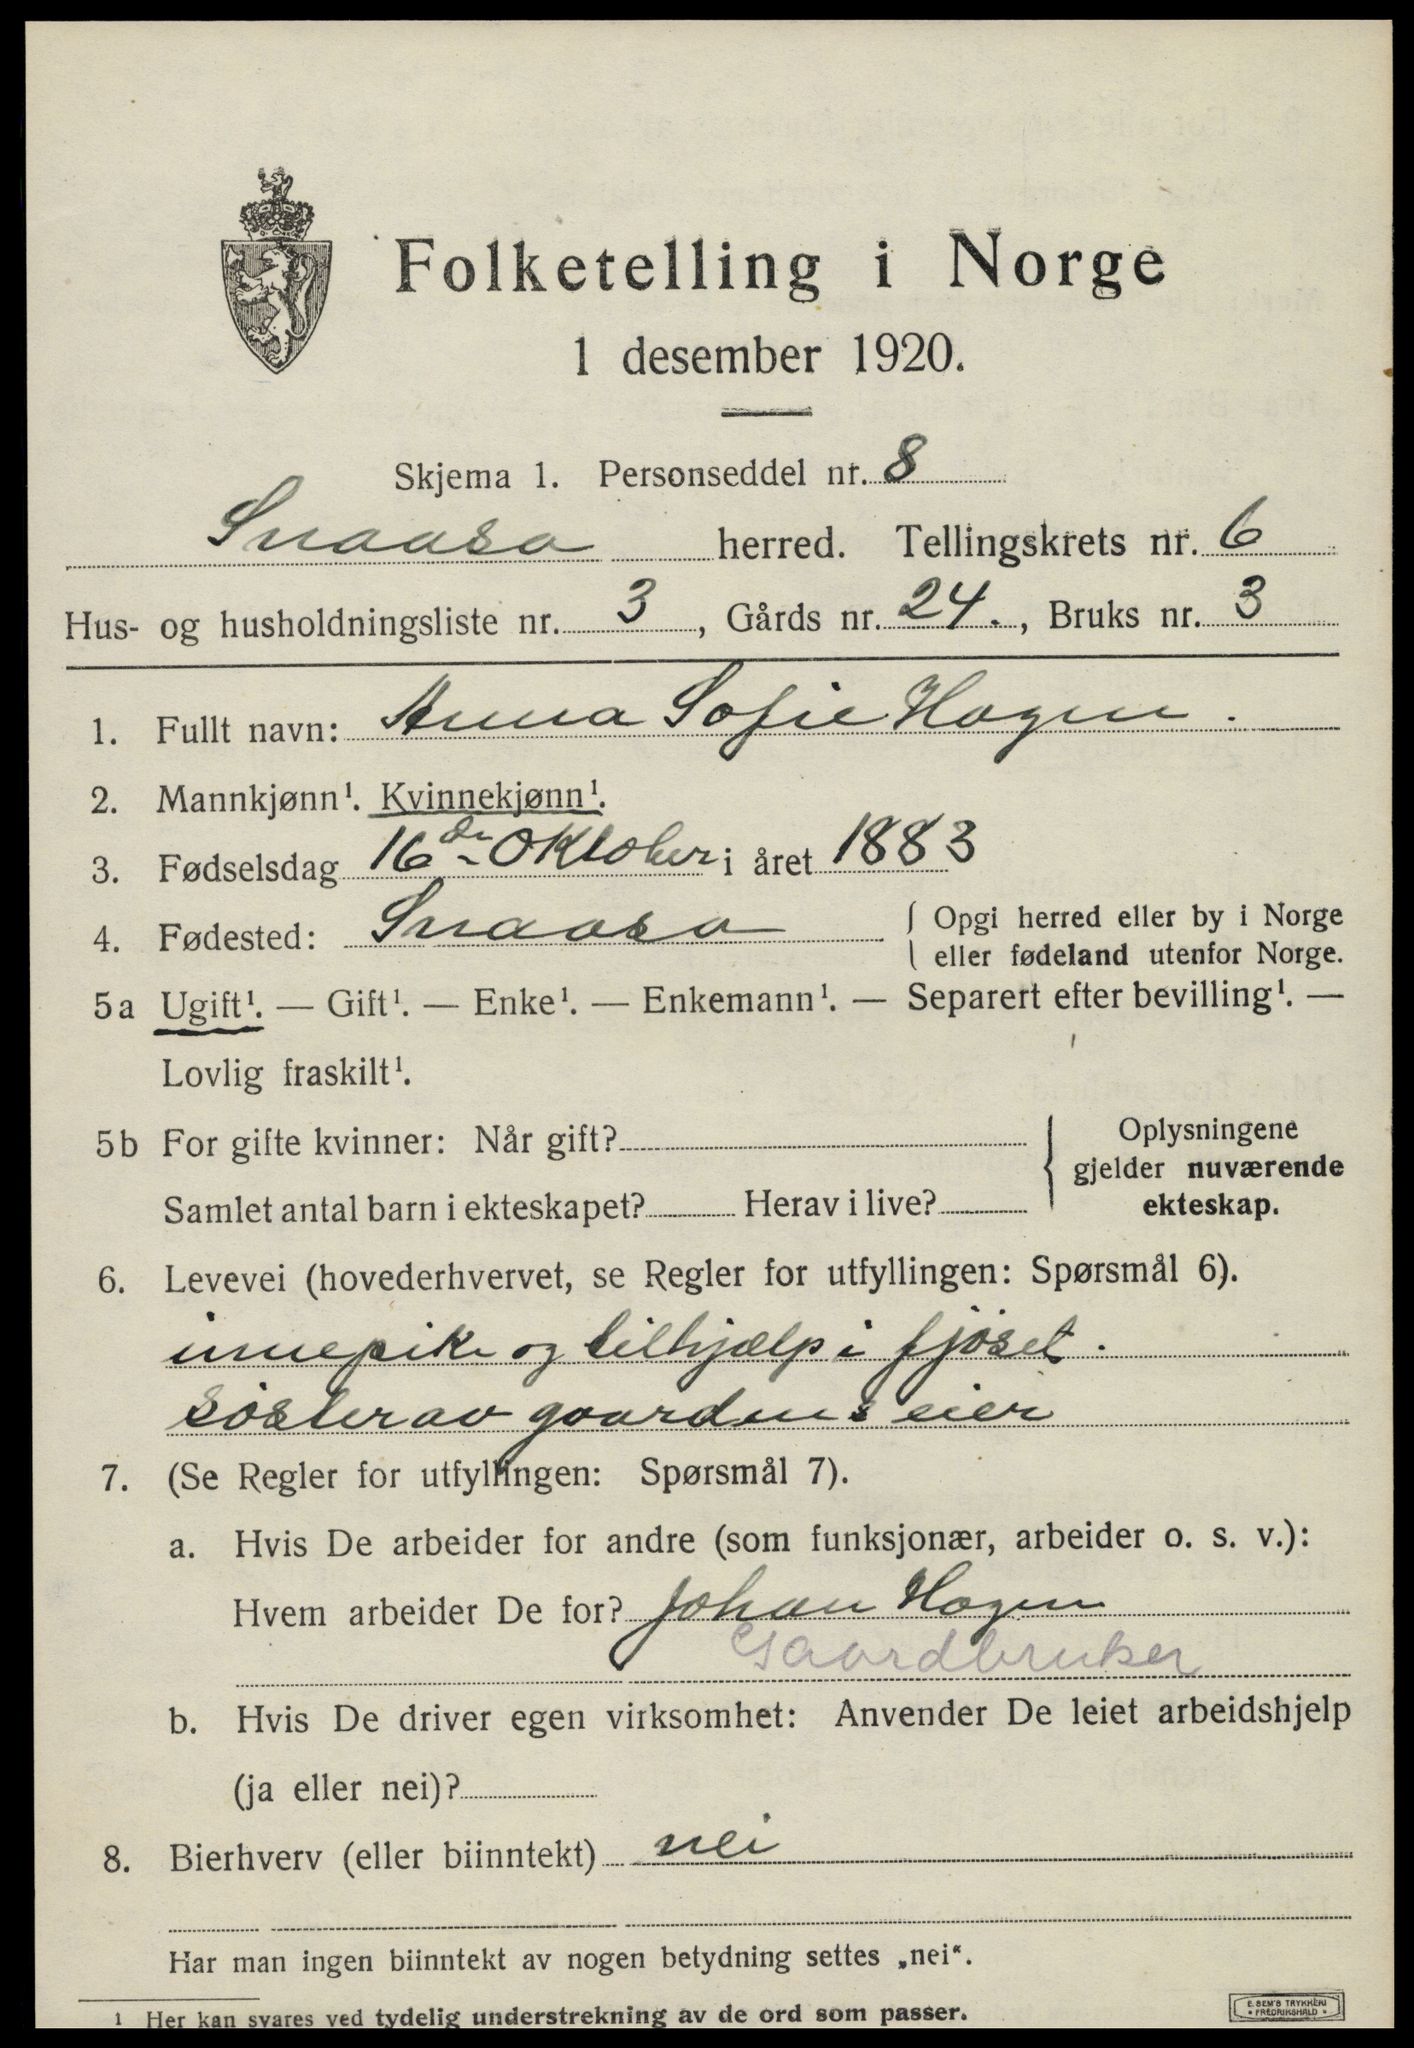 Folketelling i Norge
1 desember 1920.
Skjema 1. Personseddel nr. 8
Snaasa herred. Tellingskrets nr. 6
Hus- og husholdningsliste nr. 3, Gårds nr. 24., Bruks nr. 3
1. Fullt navn: Anna Sofie Hagen.
2. Mannkjønn¹. Kvinnekjønn¹.
3. Fødselsdag 16de Oktober i året 1883
4. Fødested: Snaasa { Opgi herred eller by i Norge
eller fødeland utenfor Norge.
5a Ugift¹. — Gift¹. — Enke¹. — Enkemann¹. — Separert efter bevilling¹. —
Lovlig fraskilt¹.
5b For gifte kvinner: Når gift? Oplysningene
gjelder nuværende
Samlet antal barn i ekteskapet? Herav i live? ekteskap.
6. Levevei (hovederhvervet, se Regler for utfyllingen: Spørsmål 6).
innepike og tilhjælp i fjöset.
söster av gaardens eier
7. (Se Regler for utfyllingen: Spørsmål 7).
a. Hvis De arbeider for andre (som funksjonær, arbeider o. s. v.):
Hvem arbeider De for? Johan Hagen
Gaardbruker
b. Hvis De driver egen virksomhet: Anvender De leiet arbeidshjelp
(ja eller nei)?
8. Bierhverv (eller biinntekt) nei
Har man ingen biinntekt av nogen betydning settes „nei“.
1 Her kan svares ved tydelig understrekning av de ord som passer.
E. SEM'S TRYKKERI
• FREDRIKSHALD •